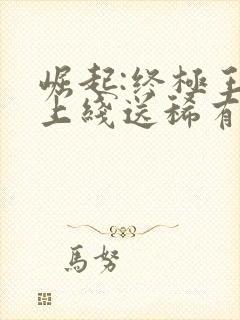 崛起:终極王
上綫送稀有
馬努